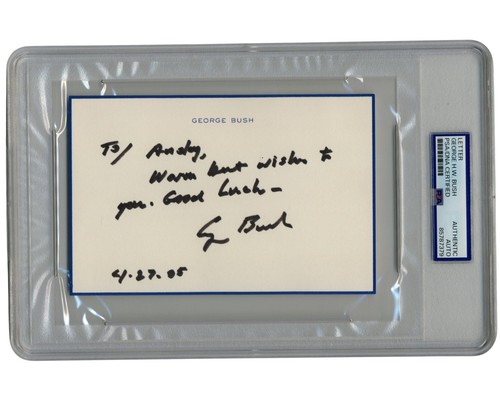 GEORGE BUSH
To/ Andy,
Warm best wishes to
you. Good Luck -
G Bush
4.27.05
LETTER
GEORGE H.W. BUSH
PSA/DNA CERTIFIED
AUTHENTIC
AUTO
85787379